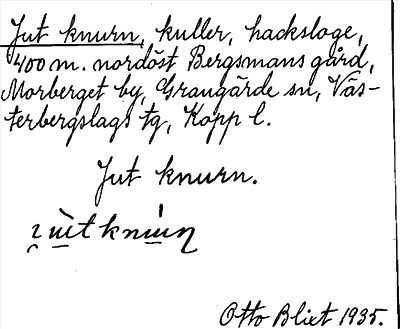 Jut knurn, kuller, hacksloge,
400 m. nordöst Bergsmansgård,
Morberget by, Grangärde sn, Väs-
terbergslags tg, Kopp l.
Jut knurn.
Otto Blixt 1935.